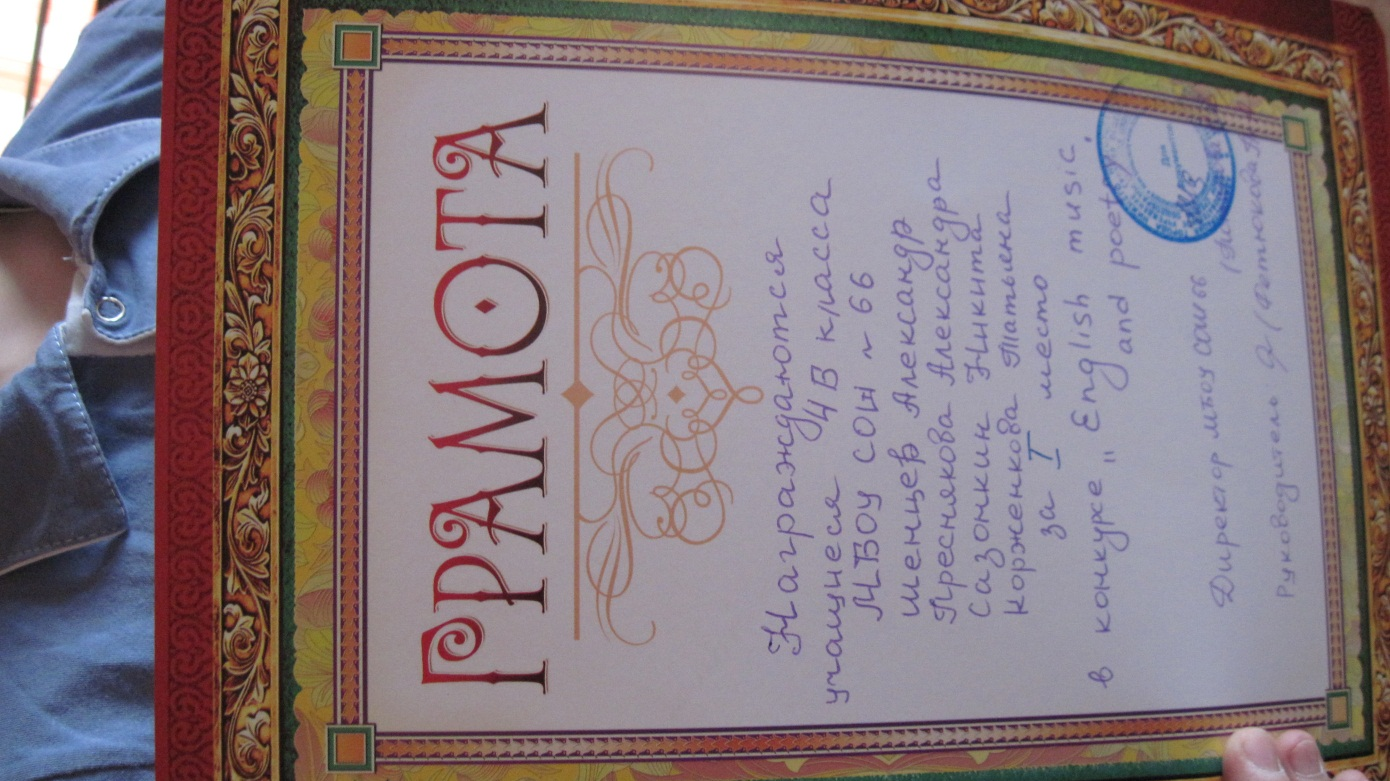 ГРАМОТА
Награждаются
учащиеся 4В класса
МБОУ СОШ № 66
Шенцев Александр
Преснякова Александра
Сазонкин Никита
Корженкова Татьяна
за I место
в конкурсе "English music
and poetry".
Директор МБОУ СОШ66
Руководитель: